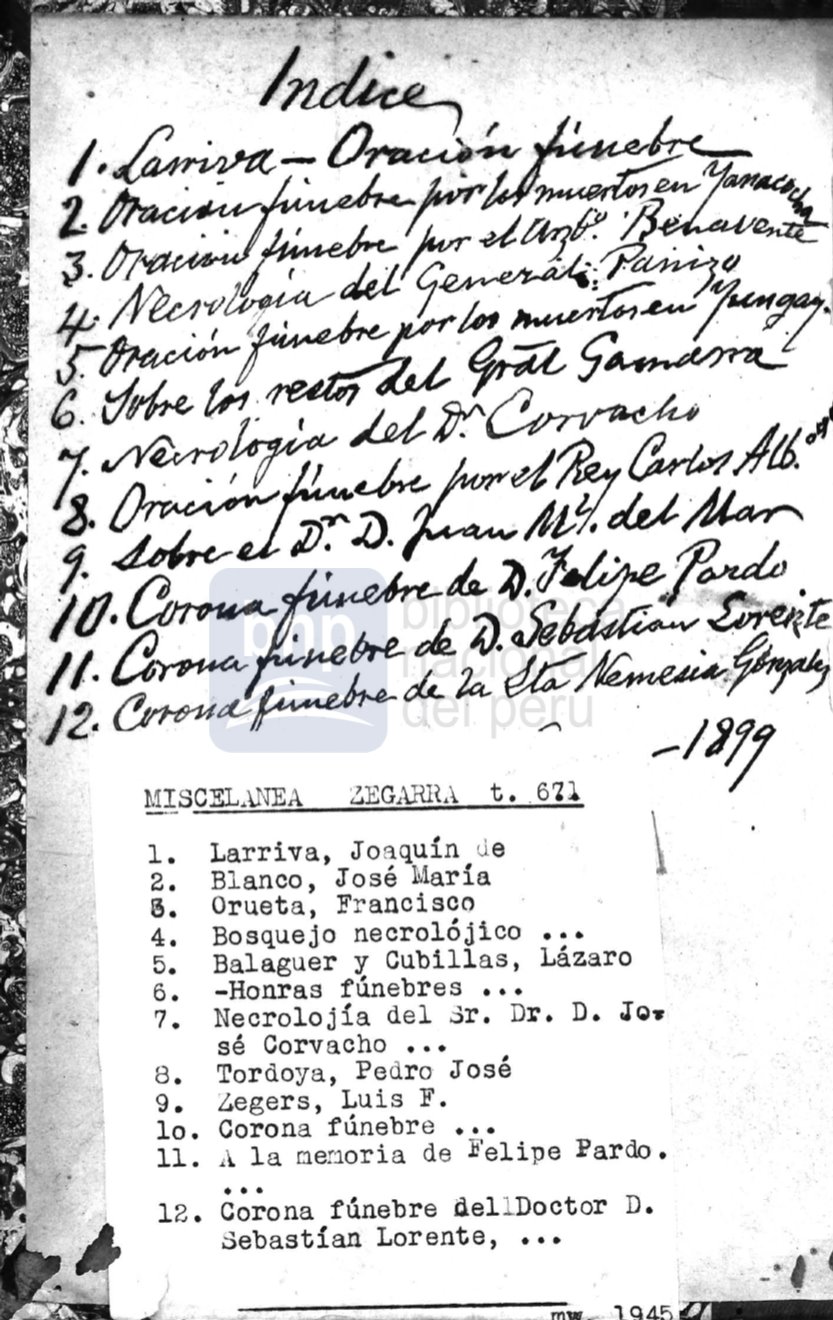 Indice
1. Larriva — Oración fúnebre
2. Oración fúnebre por los muertos en Yanacocha
3. Oración fúnebre por el Arzbº. Benavente
4. Necrología del General: Panizo
5. Oración fúnebre por los muertos en Yungay.
6. Sobre los restos del Grāl Gamarra
7. Necrología del Dr. Corvacho
8. Oración fúnebre por el Rey Carlos Alb.
9. Sobre el Dn. D. Juan Ml. del Mar
10. Corona fúnebre de D. Felipe Pardo
11. Corona fúnebre de D. Sebastián Lorente
12. Corona fúnebre de la Sta Nemesia González
—1899
bnp biblioteca
nacional
del perú
MISCELANEA ZEGARRA t. 671
1. Larriva, Joaquín de
2. Blanco, José María
3. Orueta, Francisco
4. Bosquejo necrolójico ...
5. Balaguer y Cubillas, Lázaro
6. -Honras fúnebres ...
7. Necrolojía del Sr. Dr. D. Jo-
sé Corvacho ...
8. Tordoya, Pedro José
9. Zegers, Luis F.
10. Corona fúnebre ...
11. A la memoria de Felipe Pardo.
...
12. Corona fúnebre dellDoctor D.
Sebastían Lorente, ...
mw 1945